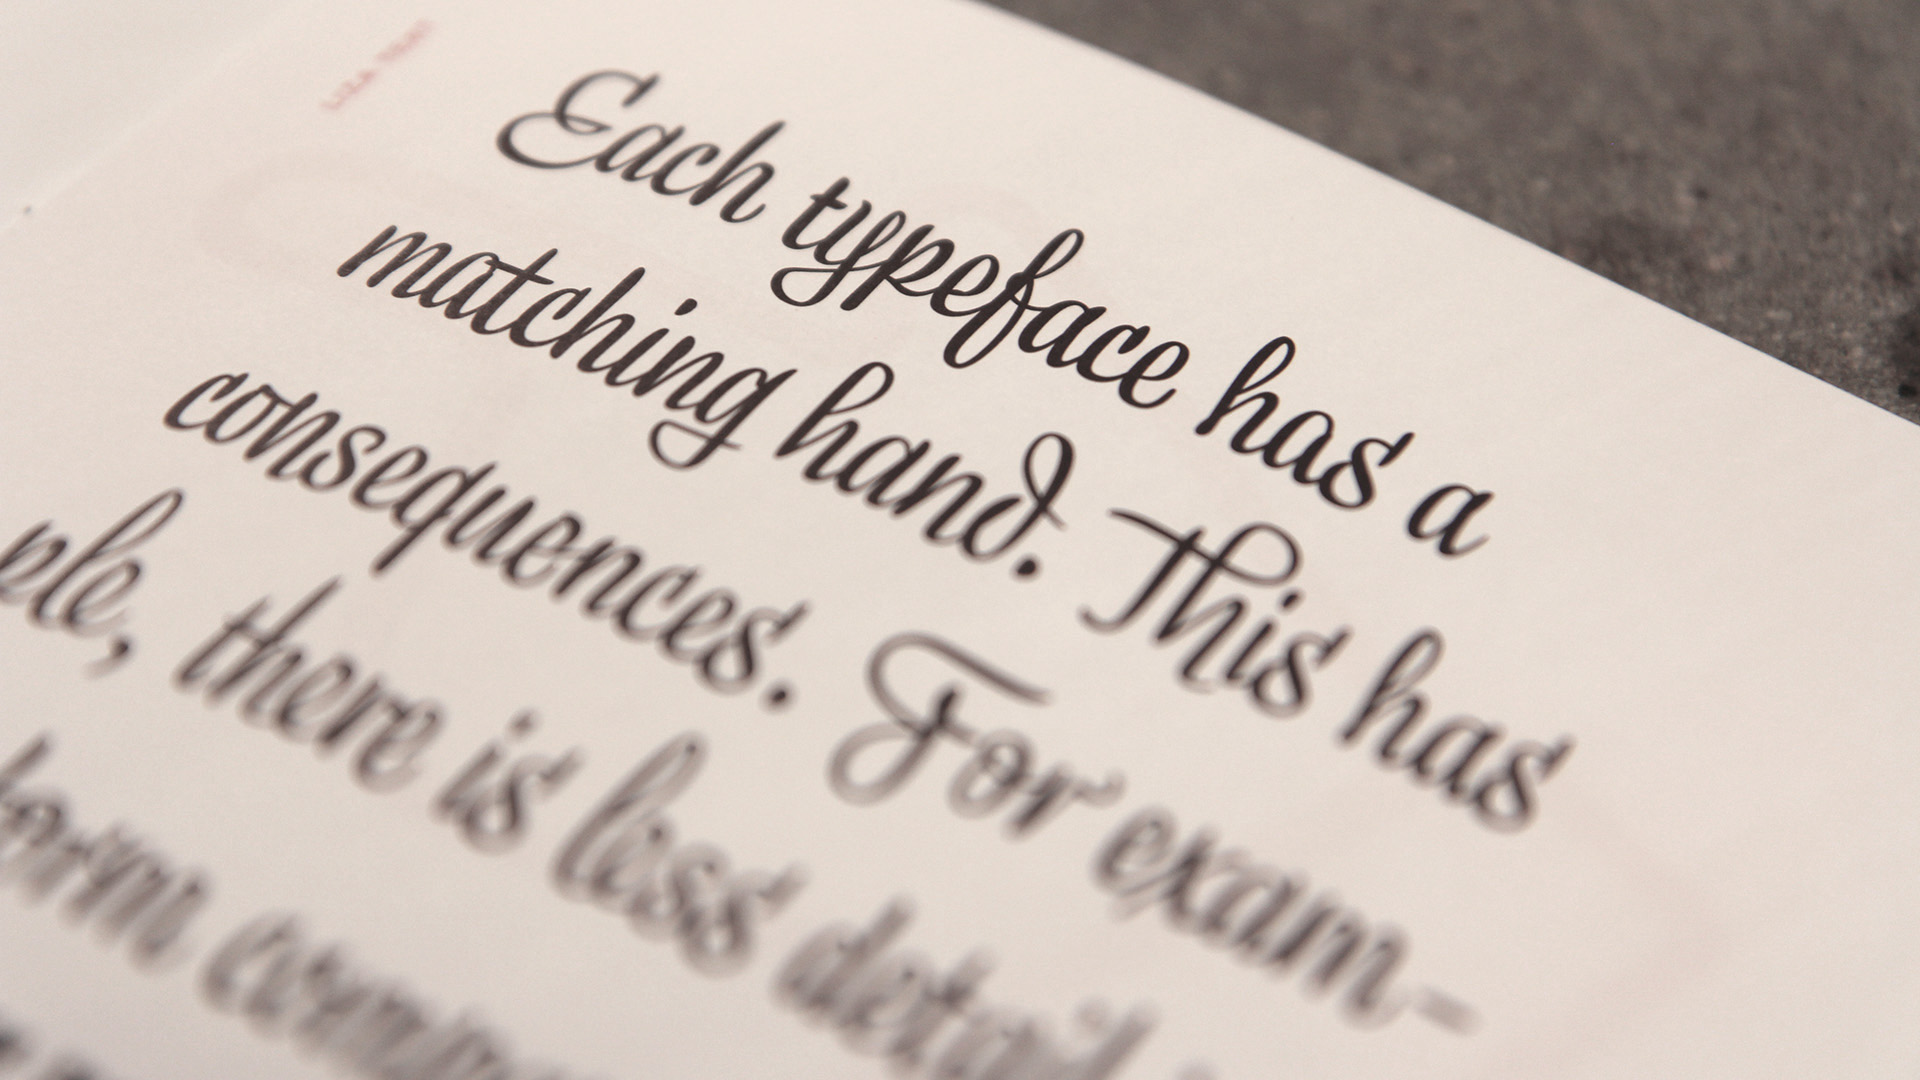 LIZA TEXT
Each typeface has a
matching hand. This has
consequences. For exam-
ple, there is less detail